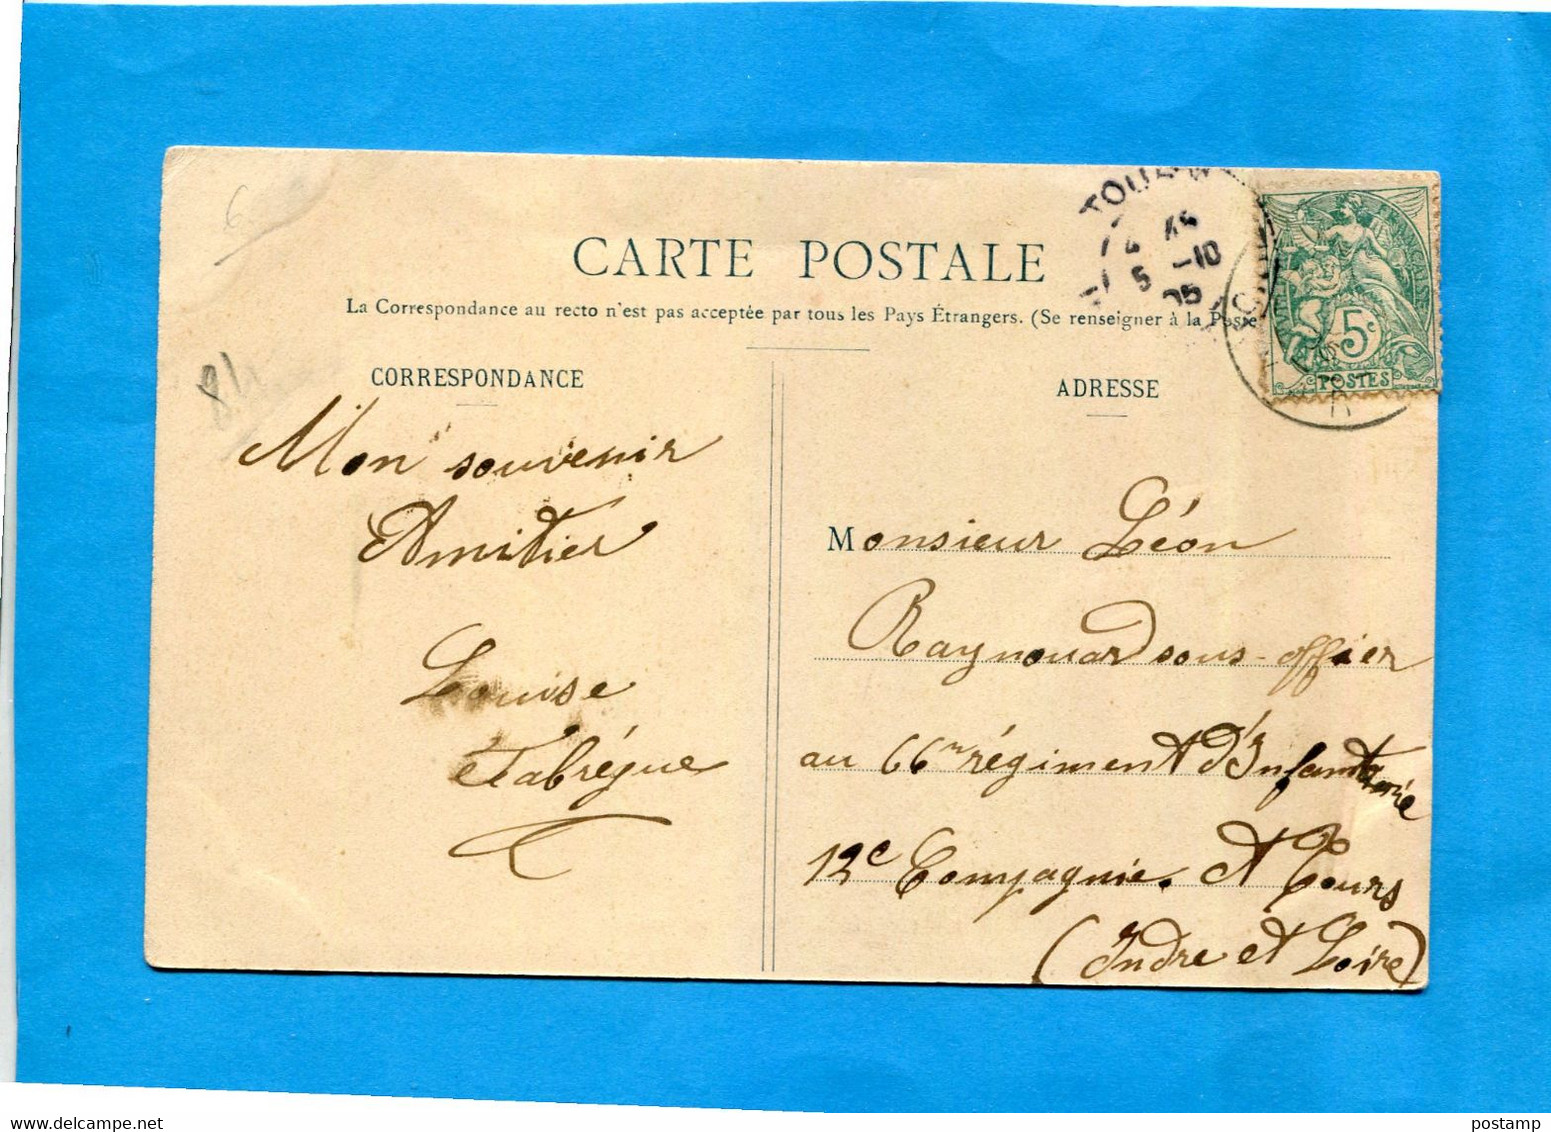 6
84
CARTE POSTALE
La Correspondance au recto n'est pas acceptée par tous les Pays Étrangers. (Se renseigner à la Poste
5 -10
05
5c
POSTES
CORRESPONDANCE
Mon souvenir
Amitiés
Louise
Fabrégue
ADRESSE
Monsieur Léon
Raynouard sous-offier
au 66me régiment d'Infanterie
12e Compagnie. A Tours
(Indre et Loire)
postamp